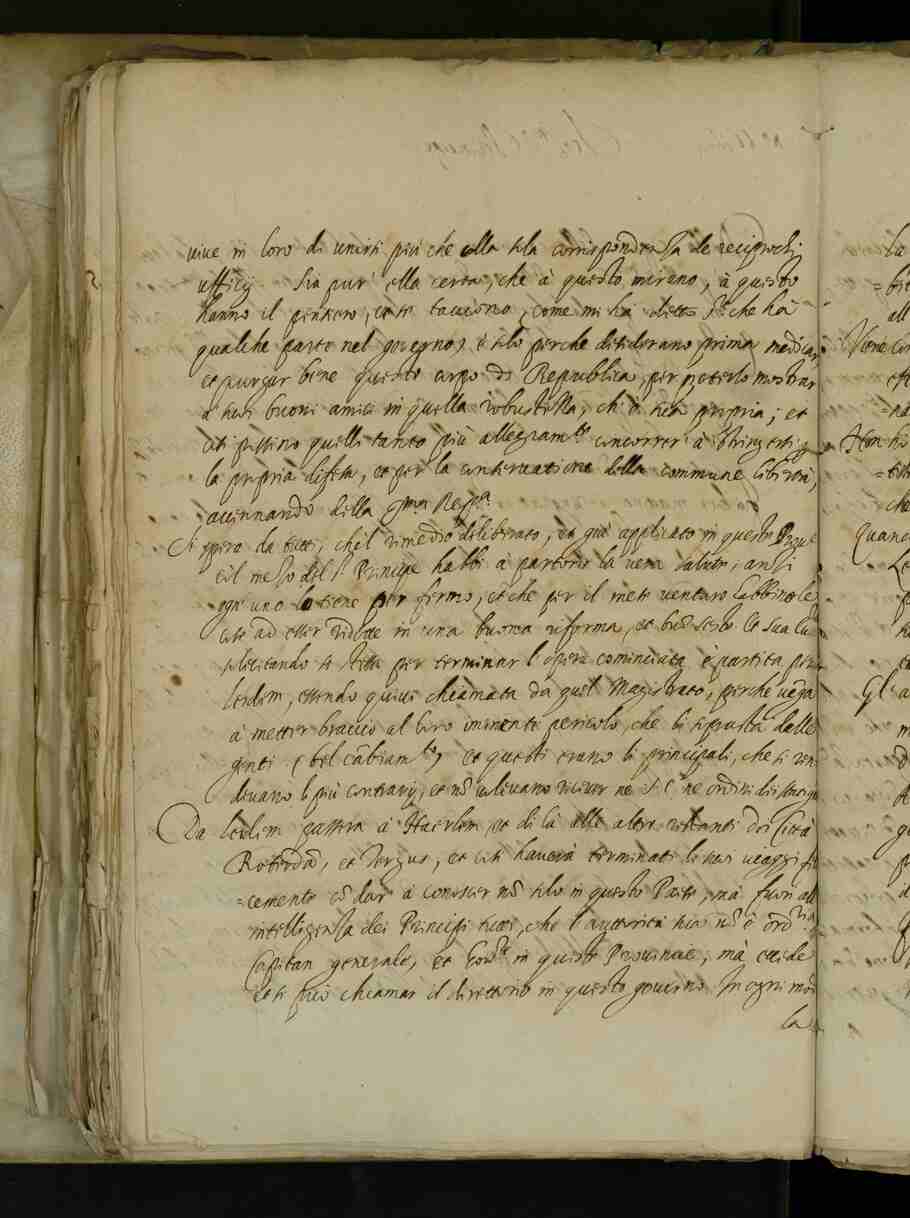 vive in loro di unirsi più che alla sola corrispondenza de reciprochi
ufficij. Sia pur' ella certa, che à questo mirano, à questo
hanno il pensiero, et se tacciono, come mi hà detto che hà
qualche parte nel governo, è solo perche desiderano prima medicar,
et purgar bene questo corpo di Republica, per poterlo mostrar
a suoi buoni amici in quella robustezza, ch'è sua propria; et
così possino quelli tanto più allegiam.te concorrer à stringersi
la propria difesa, et per la conservatione della commune libertà,
accennando della Ser.ma Rep.ca
Si spera da tutti, che'l rimedio deliberato, et già applicato in questo
col mezo del s.r Principe habbi à partorir la vera salute, anzi
ogn' uno lo tiene per fermo, et che per il mese venturo habbino le
cose ad esser ridotte in una buona riforma, et buon sesto et sua
sollecitando se stessa per terminar l'opera cominciata è partita per
Leiden, essendo quivi chiamata da quel Magistrato, perche venga
à metter braccio al loro iminente pericolo, che li soprastà dalle
genti et questi erano li principali, che si ren
devano li più contrarij, et nõ volevano ricever ne S. E. ne ordini
Da Leiden passerà à Haerlem, et di là alle altre restanti doi Città
Roterdã, et Tergus, et così haverà terminati li suoi viaggi
=cemente cõ dar à conoscer nõ solo in queste Parte, mà fuori all
intelligenza dei Principi tutti, che l'auttorità sua nõ è ord.ria
Capitan generale, et Gov.r in queste Provincie, mà eccede
et si può chiamar il direttorio in questo governo. In ogni mõ
la